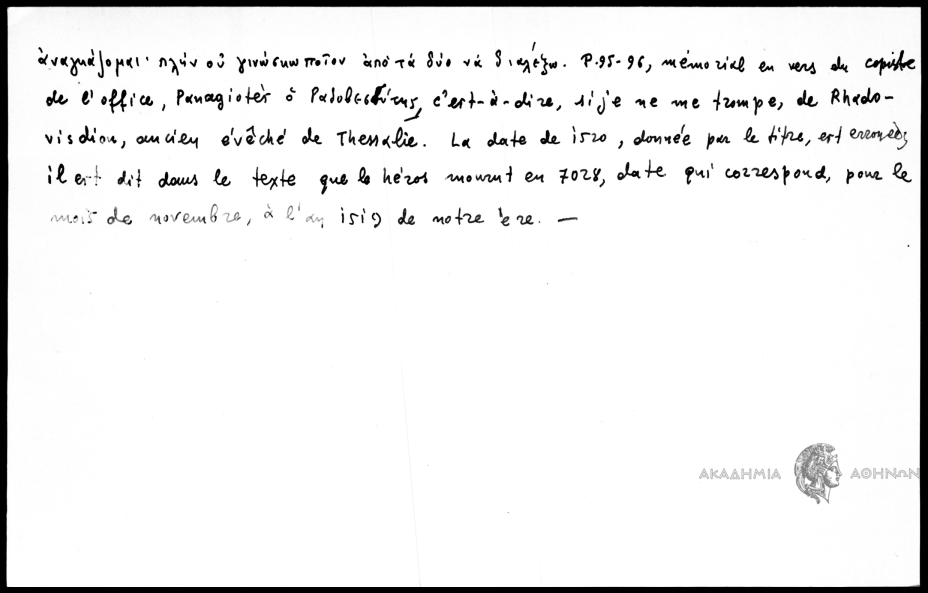 ἀναγκάζομαι· πλὴν οὐ γινώσκω ποῖον ἀπὸ τὰ δύο νὰ διαλέξω. P. 95-96, mémorial en vers du copiste
de l'office, Panagiotès ὁ Ῥαδοβεσδίτης, c'est-à-dire, si je ne me trompe, de Rhado-
visdion, ancien évêché de Thessalie. La date de 1520, donnée par le titre, est erronée;
il est dit dans le texte que le héros mourut en 7028, date qui correspond, pour le
mois de novembre, à l'an 1519 de notre ère. —
ΑΚΑΔΗΜΙΑ ΑΘΗΝΩΝ